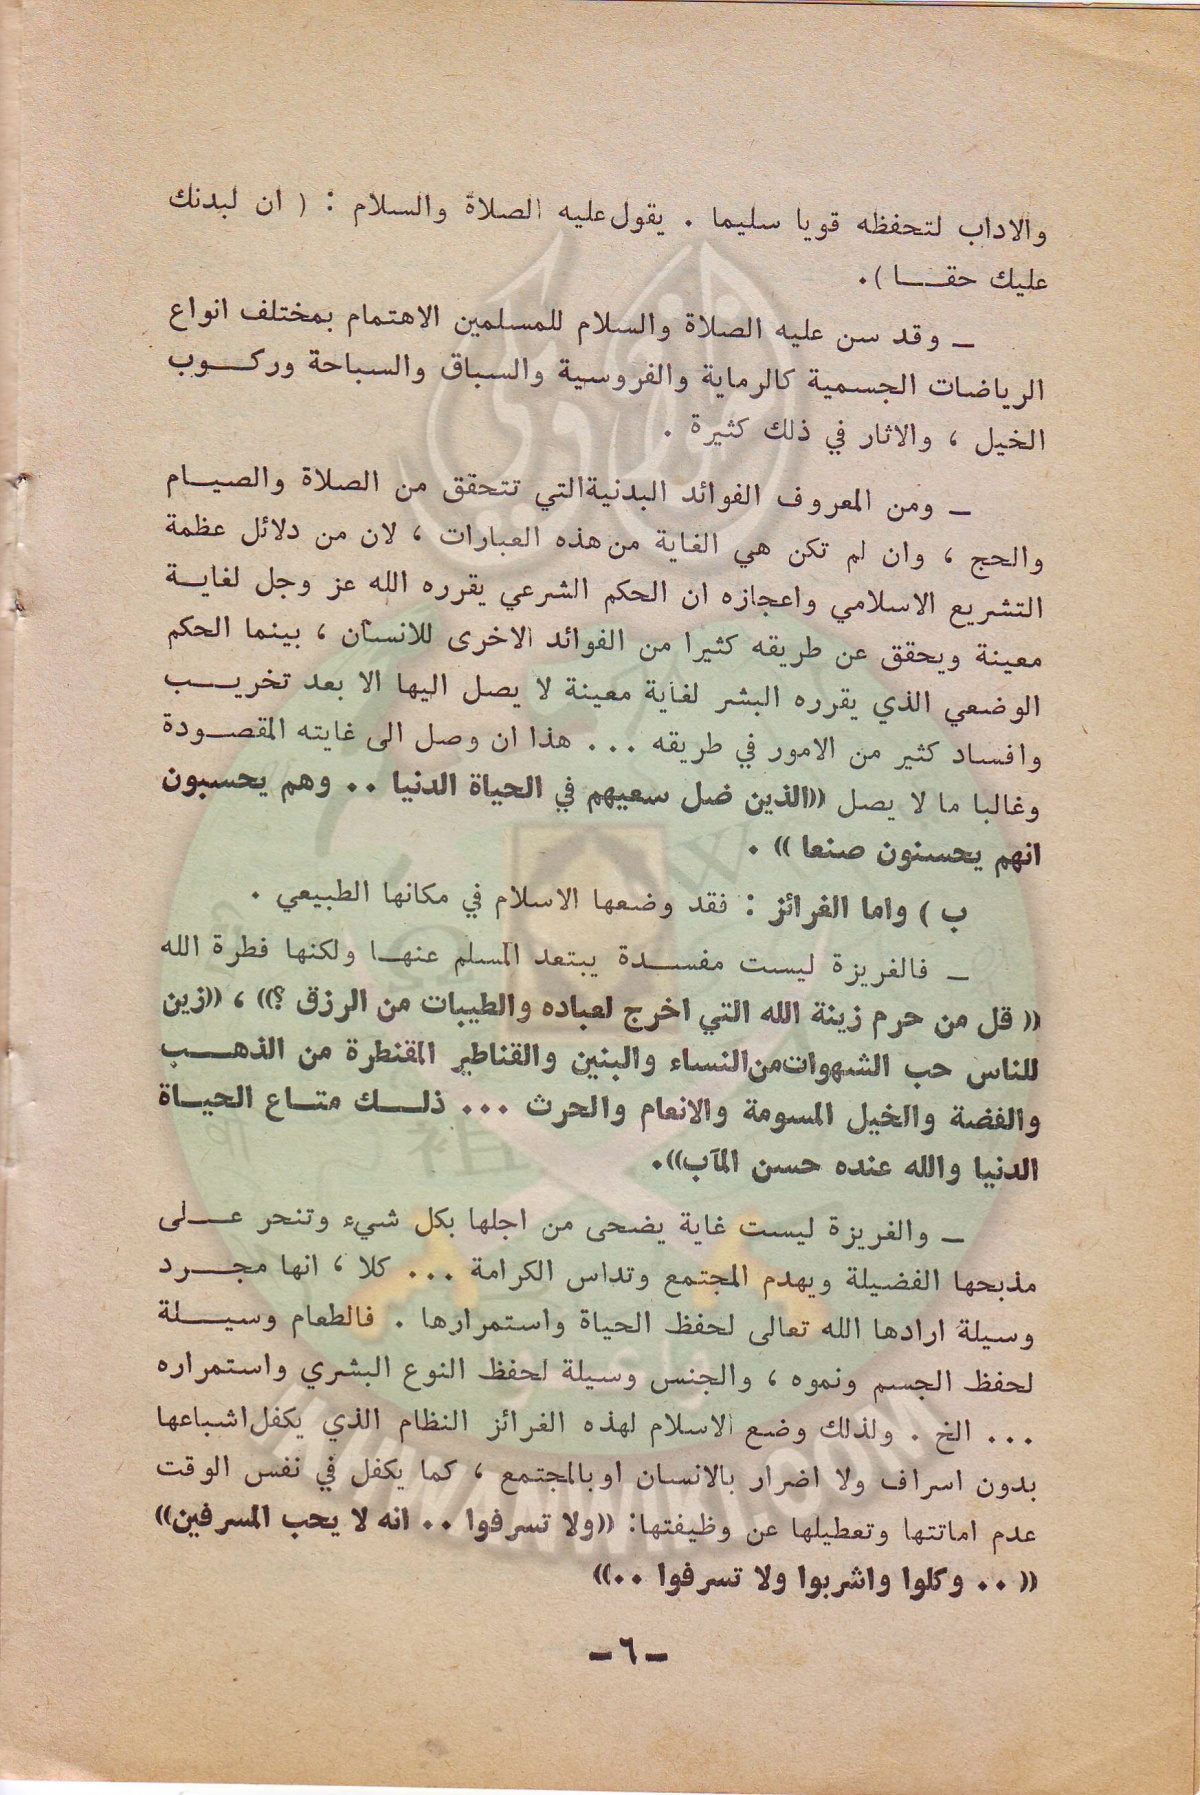 والاداب لتحفظه قويا سليما . يقول عليه الصلاة والسلام : ( ان لبدنك
عليك حقـــا ).
ـ وقد سن عليه الصلاة والسلام للمسلمين الاهتمام بمختلف انواع
الرياضات الجسمية كالرماية والفروسية والسباق والسباحة وركـــوب
الخيل ، والاثار في ذلك كثيرة .
ـ ومن المعروف الفوائد البدنية التي تتحقق من الصلاة والصيـــام
والحج ، وان لم تكن هي الغاية من هذه العبارات ، لان من دلائل عظمة
التشريع الاسلامي واعجازه ان الحكم الشرعي يقرره الله عز وجل لغايـــة
معينة ويحقق عن طريقه كثيرا من الفوائد الاخرى للانسان ، بينما الحكم
الوضعي الذي يقرره البشر لغاية معينة لا يصل اليها الا بعد تخريـــب
وافساد كثير من الامور في طريقه ... هذا ان وصل الى غايته المقصـودة
وغالبا ما لا يصل ((الذين ضل سعيهم في الحياة الدنيا .. وهم يحسبون
انهم يحسنون صنعا )) .
ب ) واما الغرائز : فقد وضعها الاسلام في مكانها الطبيعي .
ـ فالغريزة ليست مفســـدة يبتعد المسلم عنهـــا ولكنها فطرة الله
(( قل من حرم زينة الله التي اخرج لعباده والطيبات من الرزق ؟)) ، ((زين
للناس حب الشهوات من النساء والبنين والقناطير المقنطرة من الذهـــب
والفضة والخيل المسومة والانعام والحرث ... ذلـــك متـــاع الحيـــاة
الدنيا والله عنده حسن المآب)).
ـ والغريزة ليست غاية يضحى من اجلها بكل شيء وتنحر عـــلى
مذبحها الفضيلة ويهدم المجتمع وتداس الكرامة ... كلا ، انها مجـــرد
وسيلة ارادها الله تعالى لحفظ الحياة واستمرارها . فالطعام وسيـــلة
لحفظ الجسم ونموه ، والجنس وسيلة لحفظ النوع البشري واستمراره
... الخ . ولذلك وضع الاسلام لهذه الغرائز النظام الذي يكفل اشباعها
بدون اسراف ولا اضرار بالانسان او بالمجتمع ، كما يكفل في نفس الوقت
عدم اماتتها وتعطيلها عن وظيفتها: ((ولا تسرفوا .. انه لا يحب المسرفين))
(( .. وكلوا واشربوا ولا تسرفوا ..))
ـ ٦ ـ